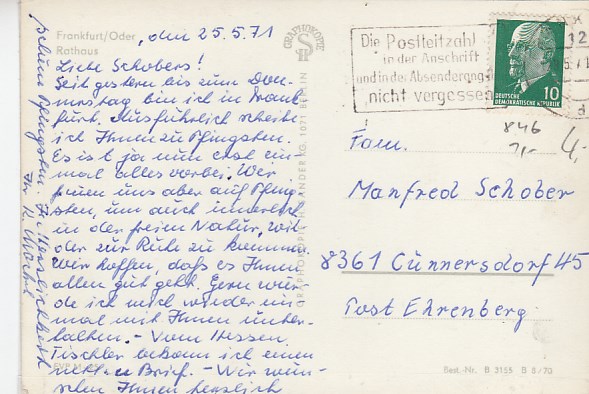 Frankfurt/Oder
Rathaus
, den 25.5.71
Liebe Schobers!
Seit gestern bis zum Don-
nerstag bin ich in Frank-
furt. Ausführlich schreibe
ich Ihnen zu Pfingsten.
Es ist ja nun erst ein-
mal alles vorbei. Wir
freuen uns aber auf Pfing-
sten, um auch innerlich
in der freien Natur, wie-
der zur Ruhe zu kommen.
Wir hoffen, daß es Ihnen
allen gut geht. Gern wür-
de ich mich wieder ein-
mal mit Ihnen unter-
halten. - Vom Hessen
Tischler bekam ich einen
netten Brief. - Wir wün-
schen Ihnen herzlich
Pfingsten. Ihr
GRAPHOKOPIE
1071 BERLIN
Die Postleitzahl
in der Anschrift
und in der Absenderangabe
nicht vergessen
10
DEUTSCHE
DEMOKRATISCHE REPUBLIK
12
846
1,-
4,-
Fam.
Manfred Schober
8361 Cunnersdorf 45
Post Ehrenberg
Best.-Nr. B 3155 B 8/70